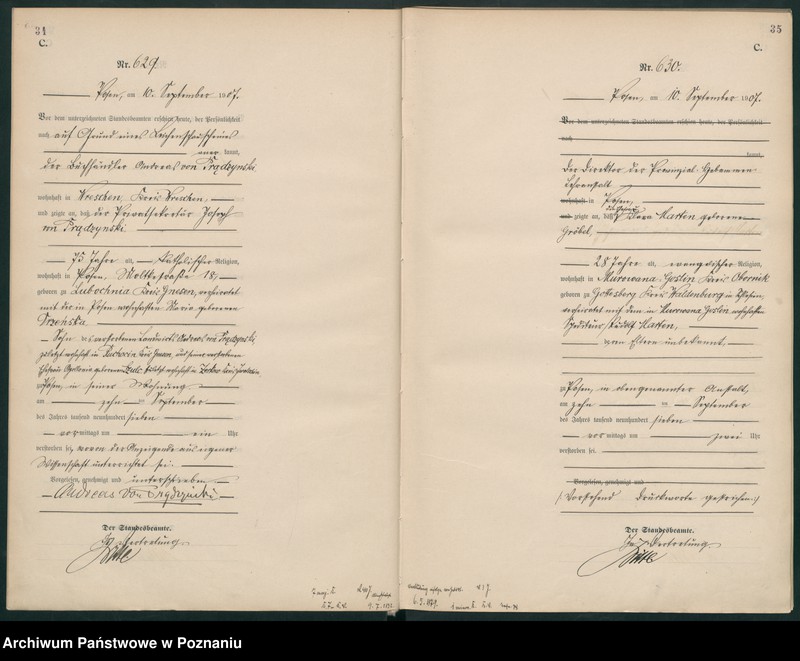 34
C.
Nr. 629.
Posen, am 10. September 1907.
Vor dem unterzeichneten Standesbeamten erschien heute, der Persönlichkeit
nach auf Grund eines Leichenschauscheines
kannt,
der Buchhändler Andreas von Prądzynski
wohnhaft in Wreschen, Kreis Wreschen,
und zeigte an, daß der Privatsekretär Joseph
von Prądzynski
73 Jahre alt, katholischer Religion,
wohnhaft in Posen, Moltkestraße 18,
geboren zu Lubochnia Kreis Gnesen, verheiratet
mit der in Posen wohnhaften Maria geborenen
Sohn des verstorbenen Landwirts Andreas von Prądzynski
zuletzt wohnhaft in Kreis Gnesen und seiner verstorbenen
Ehefrau Apollonia geborenen zuletzt wohnhaft in
zu Posen, in seiner Wohnung
am zehn ten September
des Jahres tausend neunhundert sieben
vor mittags um ein Uhr
verstorben sei, wovon der Anzeigende aus eigener
Wissenschaft unterrichtet sei.
Vorgelesen, genehmigt und unterschrieben
Andreas von Prądzynski
Der Standesbeamte.
In Vertretung
35
C.
Nr. 630.
Posen, am 10. September 1907.
Vor dem unterzeichneten Standesbeamten erschien heute, der Persönlichkeit
nach
kannt,
Der Direktor der Provinzial Hebammen
Lehranstalt
wohnhaft in Posen,
und zeigte an, daß die Ehefrau Martin geborene
Gröbel,
28 Jahre alt, evangelischer Religion,
wohnhaft in Murowana-Goslin Kreis Obornik
geboren zu Gottesberg Kreis Waldenburg in Schlesien,
verheiratet mit dem in Murowana Goslin wohnhaften
Spediteur Rudolf Martin,
von Eltern unbekannt.
zu Posen, in obengenannter Anstalt,
am zehn ten September
des Jahres tausend neunhundert sieben
vor mittags um zwei Uhr
verstorben sei.
Vorgelesen, genehmigt und
(Vorstehend Druckworte gestrichen.)
Der Standesbeamte.
In Vertretung
Archiwum Państwowe w Poznaniu